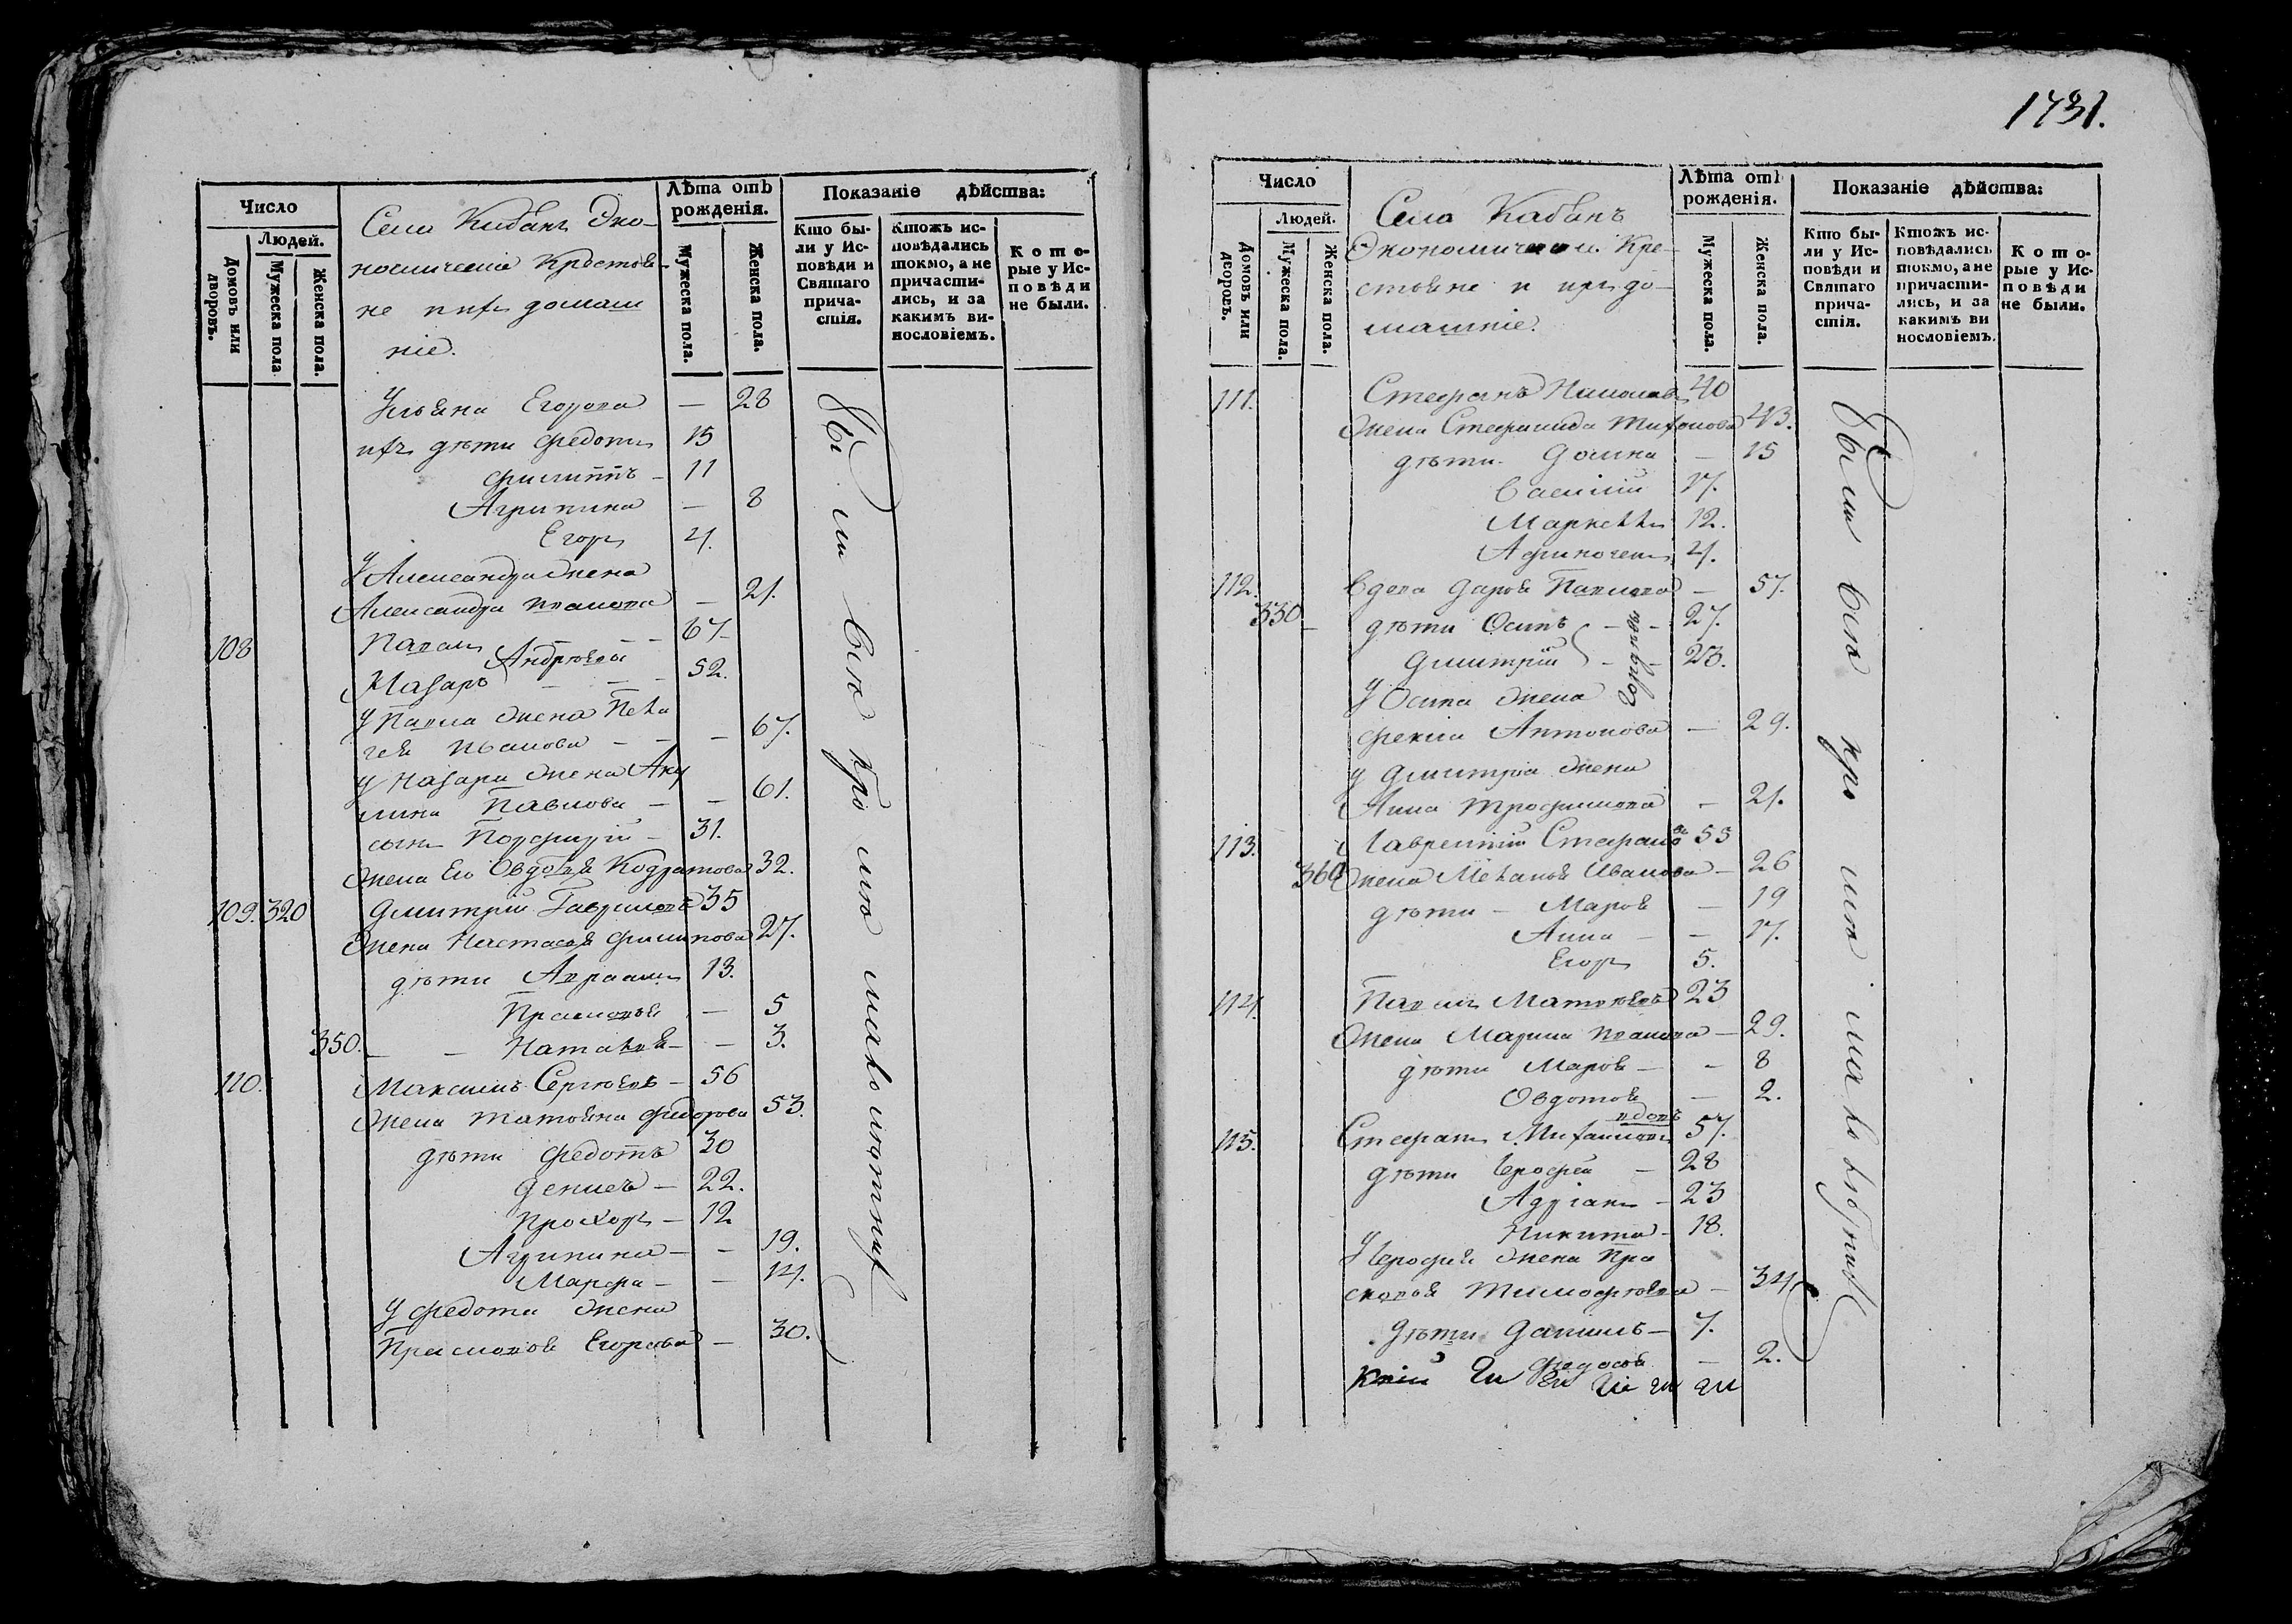 Число
Людей.
Домовъ или дворовъ.
Мужеска пола
Женска пола.
Села Кабанъ Эко-
номическiе Крестья-
не и ихъ домаш
нiе.
Лѣта отъ рожденiя.
Мужеска пола.
Женска пола.
Показанiе дѣйства:
Кто бы-
ли у Ис-
повѣди и
Святаго
прича-
стiя.
Ктожъ ис-
повѣдались
токмо, а не
причасти-
лись, и за
какимъ ви-
нословiемъ.
Кото-
рые у Ис-
повѣди
не были.
Ульяна Егорова — 28
ихъ дѣти Федотъ 15
Филиппъ - 11
Агрипина — 8
Егоръ 4.
У Александра жена
Александра Иванова — 21.
108 Павелъ - - 67
Андрѣевы
Назаръ - - - 52.
У Павла жена Пела
гея Иванова - - - 67.
У Назара жена Аку
лина Павлова - - 61.
сынъ Порфирiй - 31.
Жена Его Овдотья Кодратова 32.
109. 320 Дмитрiй Гавриловъ 35
Жена Настасья Филипова 27.
дѣти Авраамъ 13.
Прасковья — 5
350. - - Наталья - - 3.
110. Максимъ Сергѣевъ - 56
Жена Татьяна Федорова 53.
дѣти Федотъ 30
Денисъ - 22.
Прохоръ - 12
Агрипина - - 19.
Марфа - - 14.
У Федота жена
Прасковья Егорова - 30.
Были всѣ про
1731.
Число
Людей.
Домовъ или дворовъ.
Мужеска пола.
Женска пола.
Села Кабанъ
Экономическiе Кре-
стьяне и ихъ до-
машнiе.
Лѣта отъ рожденiя.
Мужеска пола.
Женска пола.
Показанiе дѣйства:
Кто бы-
ли у Ис-
повѣди и
Святаго
прича-
стiя.
Ктожъ ис-
повѣдались
токмо, а не
причасти-
лись, и за
какимъ ви
нословiемъ.
Кото-
рые у Ис-
повѣди
не были.
111. Стефанъ 40
Жена Стефанида Тихонова 43.
дѣти. Домна — 15
Василiй 17.
Маркеллъ 12.
Афиногенъ 4.
112. Вдова Дарья Павлова — 57.
330 - дѣти Осипъ - - 27.
Дмитрiй - - 23.
У Осипа жена
Фекла Антонова — 29.
У Дмитрiя жена
Анна Трофимова - 21.
113. Лаврентiй Стефановъ 55
360 Жена Меланья Иванова - 26
дѣти - Марья — 19
Анна - - 17.
Егоръ 5.
114. Павелъ Матвѣевъ 23
Жена Марина Иванова - 29.
дѣти Марья - - 8
Овдотья — 2.
вдовъ
115. Стефанъ Михайловъ 57.
дѣти Ерофей - 28
Адрiанъ - 23
Никита - 18.
У Ерофея жена Пра
сковья Тимофѣева - 34.
дѣти Данилъ - 7.
Федосья — 2.
Были всѣ про